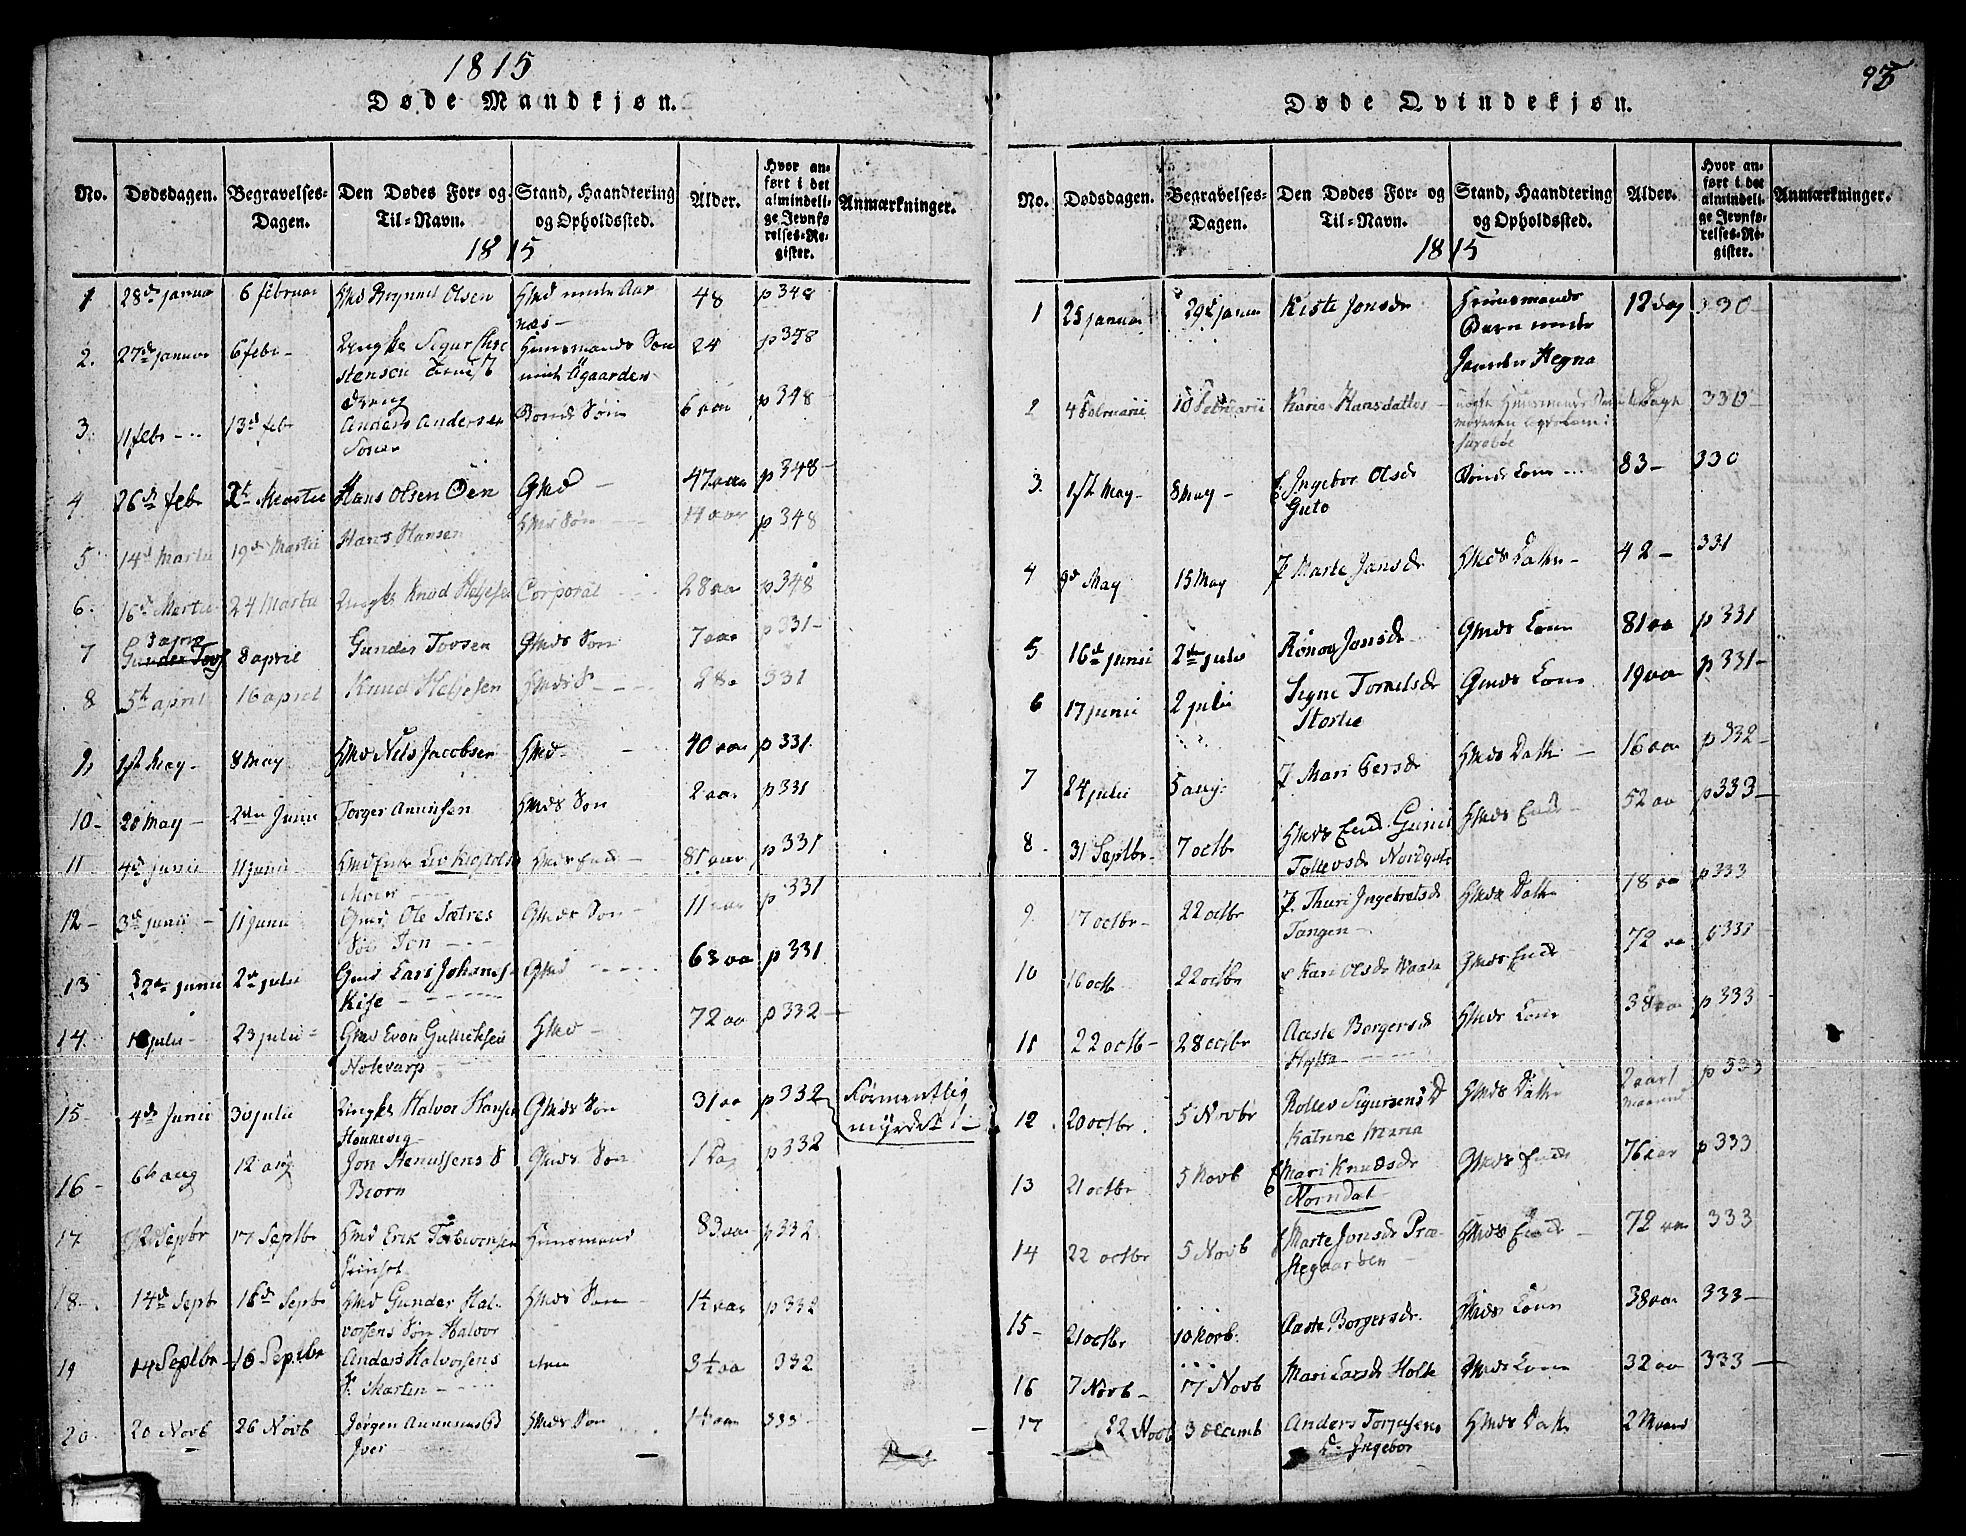 1815
Døde Mandkjøn.
No. Dødsdagen. Begravelses-Dagen. Den Dødes For- og Til-Navn. Stand, Haandtering og Opholdssted. Alder. Hvor anført i det almindelige Jevnførelses-Register. Anmærkninger.
1815
1 28de januar 6 februar Hmd Olsen Hmd 48 p348
2. 27de januar 6 febr Huusmands Søn 24 p348
3. 11 febr 13d feb Anders Andersen Bonde Søn 6 aar p348
4 26d feb Hans Olsen Øen Gmd 47 aar p348
5 14d Martii 19de Martii Hans Hansen Hmds Søn p348
6. 16d Martii 24 Martii Ungk Knud Heljesen Corporal 28 aar p348
7 3 april 8 april Gunder Tovsen Gmds Søn 7 aar p331
8 5t april 16 april Knud Heljesen Hmds S 28 331
9, 1st May 8 May Hmd Nils Jacobsen Hmd 40 aar p331
10 20 May 2den Junii Torger Hmds Søn 2 aar p331
11 4d junii 11 junii Hmds Enk 81 aar p331
12 3d junii 11 junii Gmd Ole Sætres Søn Jon Gmds Søn 11 aar p331
13 junii 2d julii Gmd Lars Kise Gmd 63 aa p331
14. julii 23 julii Hmd Even Gulliksen Holevarp Hmd 72 aa p332
15 4de Junii 30 julii Ungk Halvor Hansen Gmds Søn 31 aa p332 Formentlig myrdet
16 6te aug 12 aug Jon S Biorn Gmds Søn 1 Dag p332
17 12 Septbr 17 Septbr Hmd Erik Huusmand 83 aar p332
18 14d Septb 16d Septb Hmd Gunder Halvorsens Søn Halvor Hmds Søn 1½ aar p332
19 14 Septbr 16 Septbr Anders Halvorsens S. Martin 3½ aa 332
20 20 Novb 26 Novb Jørgen Iver Hmds Søn 1½ aar 333
95
Døde Qvindekjøn.
No. Dødsdagen. Begravelses-Dagen. Den Dødes For- og Til-Navn. Stand, Haandtering og Opholdssted. Alder. Hvor anført i det almindelige Jevnførelses-Register. Anmærkninger.
1815
1 25 januar 29de januar Kiste Jonsdr Huusmands Barn Hegna 12 dag 330
2 4 Februarii 10 Februarii Karie Hansdatter 330
3. 1st May 8 May Ingebor Olsdr 83 330
4 9d May 15 May P. Marte Jansdr Hmds Datter 42 331
5 16d junii 2den julii Rønoy Jonsdr Gmds Kone 81 aa p331
6 17 junii 2 julii Signe Gmds Kone 19 aa p331
7 24 julii 5 aug P Mari Persdr Hmds Datt 16 aar p332
8 31 Septbr 7 octbr Hmds Enke Gunil Tollevsdr Hmds Enke 52 aa p333
9. 17 octbr 22 octbr P. Thuri Ingebretsdr Tangen Hmds Datter 18 aa p333
10 16 octb 22 octbr Kari Olsdr Gmds Enke 72 aa p331
11 22 octb 28 octbr Aaste Borgersd Holta Hmds Kone 38 aa p333
12 20 octbr 5 Novbr Rollev Sigursens D Katrine Maria Hmds Datter 2 aar 1 maaned p333
13 21 octbr 5 Novb Mari Knudsdr Norndal Gmds Enke 76 aar p333
14 22 octbr 5 Novb Marte Jonsdr Præstegaarden Hmds Enke 72 aa 333
15 21 octbr 10 Novb. Aaste Borgersdr. Hmds Kone 38 aa 333
16 7 Novb 17 Novb Mari Larsdr Holte Gmds Kone 32 aa 333
17 22 Novb 3 Decemb Anders Torjusens D. Ingebor Hmds Datter 2 Maaned